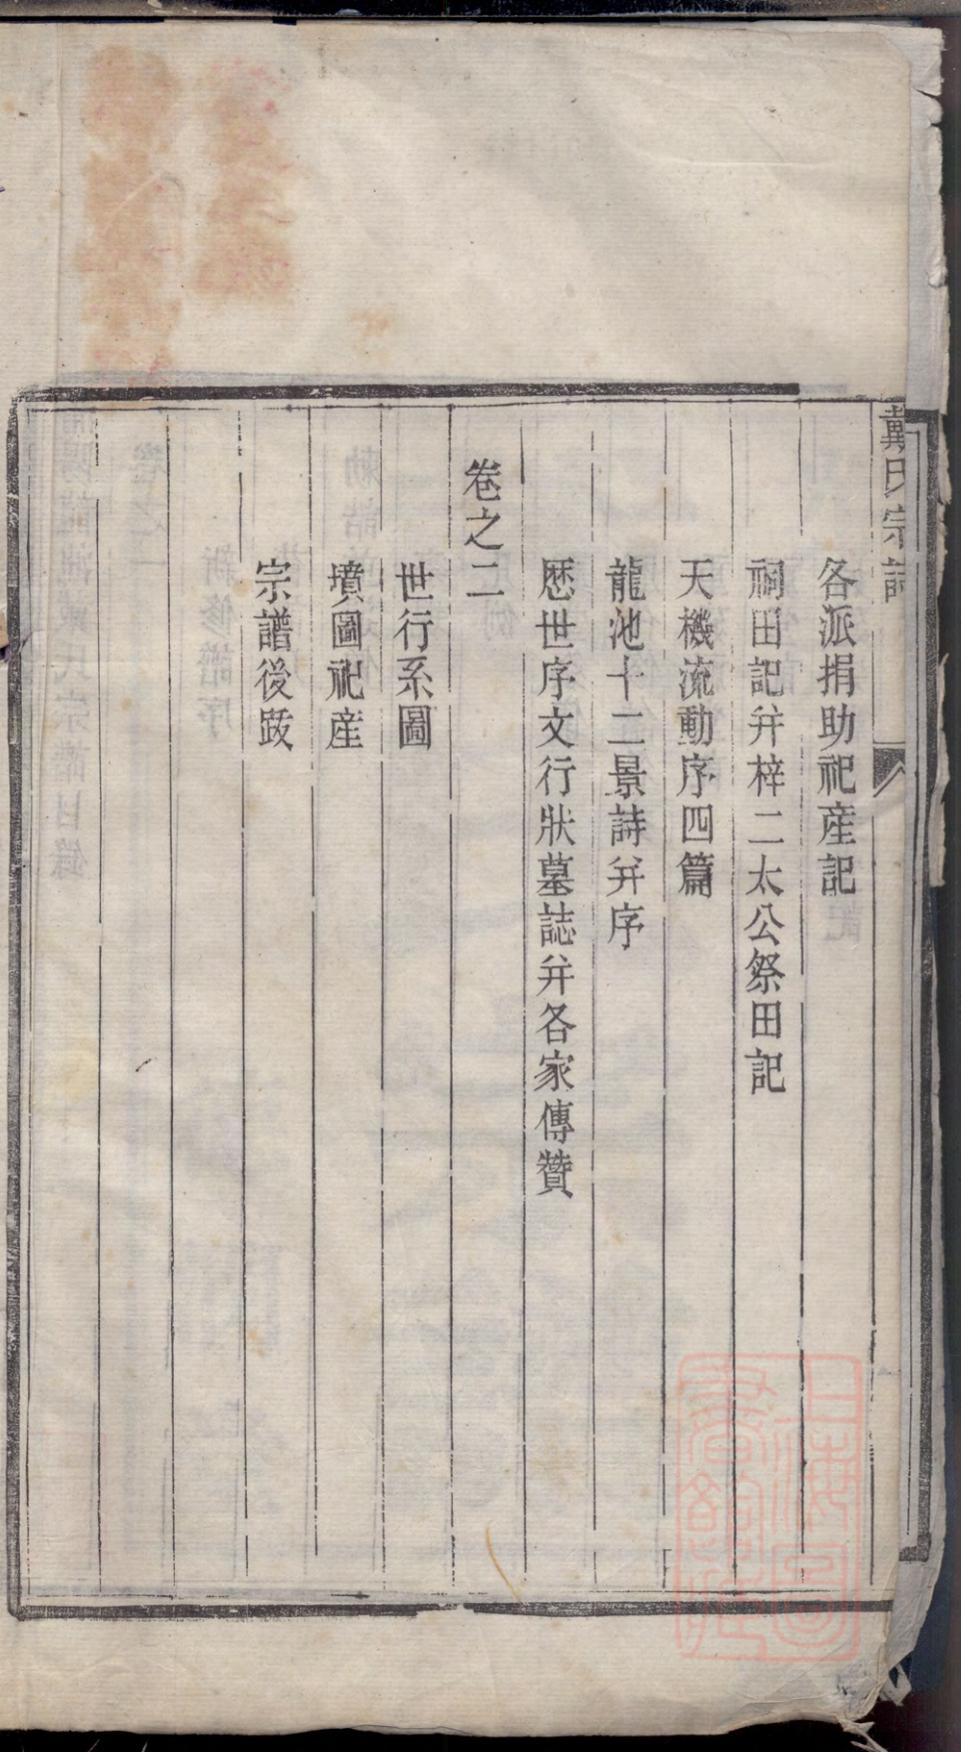 戴氏宗譜
各派捐助祀産記
祠田記并梓二太公祭田記
天機流動序四篇
龍池十二景詩并序
歷世序文行狀墓誌并各家傳贊
卷之二
世行系圖
墳圖祀産
宗譜後跋
上海圖書館藏